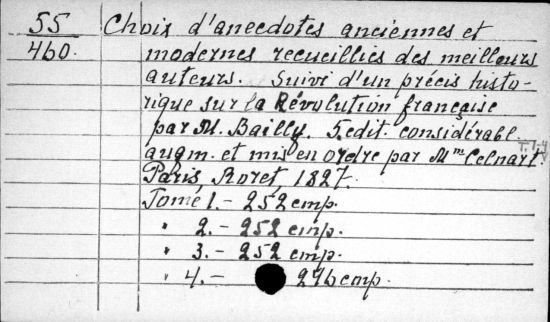 55 Choix d'anecdotes anciennes et
460. modernes recueillies des meilleurs
auteurs. Suivi d'un précis histo-
rique sur la Révolution française
par M. Bailly. 5.edit. considérabl.
augm. et mis en ordre par Mm Celnart.
Paris Roret, 1827.
Tomé 1. - 252 стр.
" 2. - 252 стр.
" 3. - 252 стр.
" 4. - 276 стр.